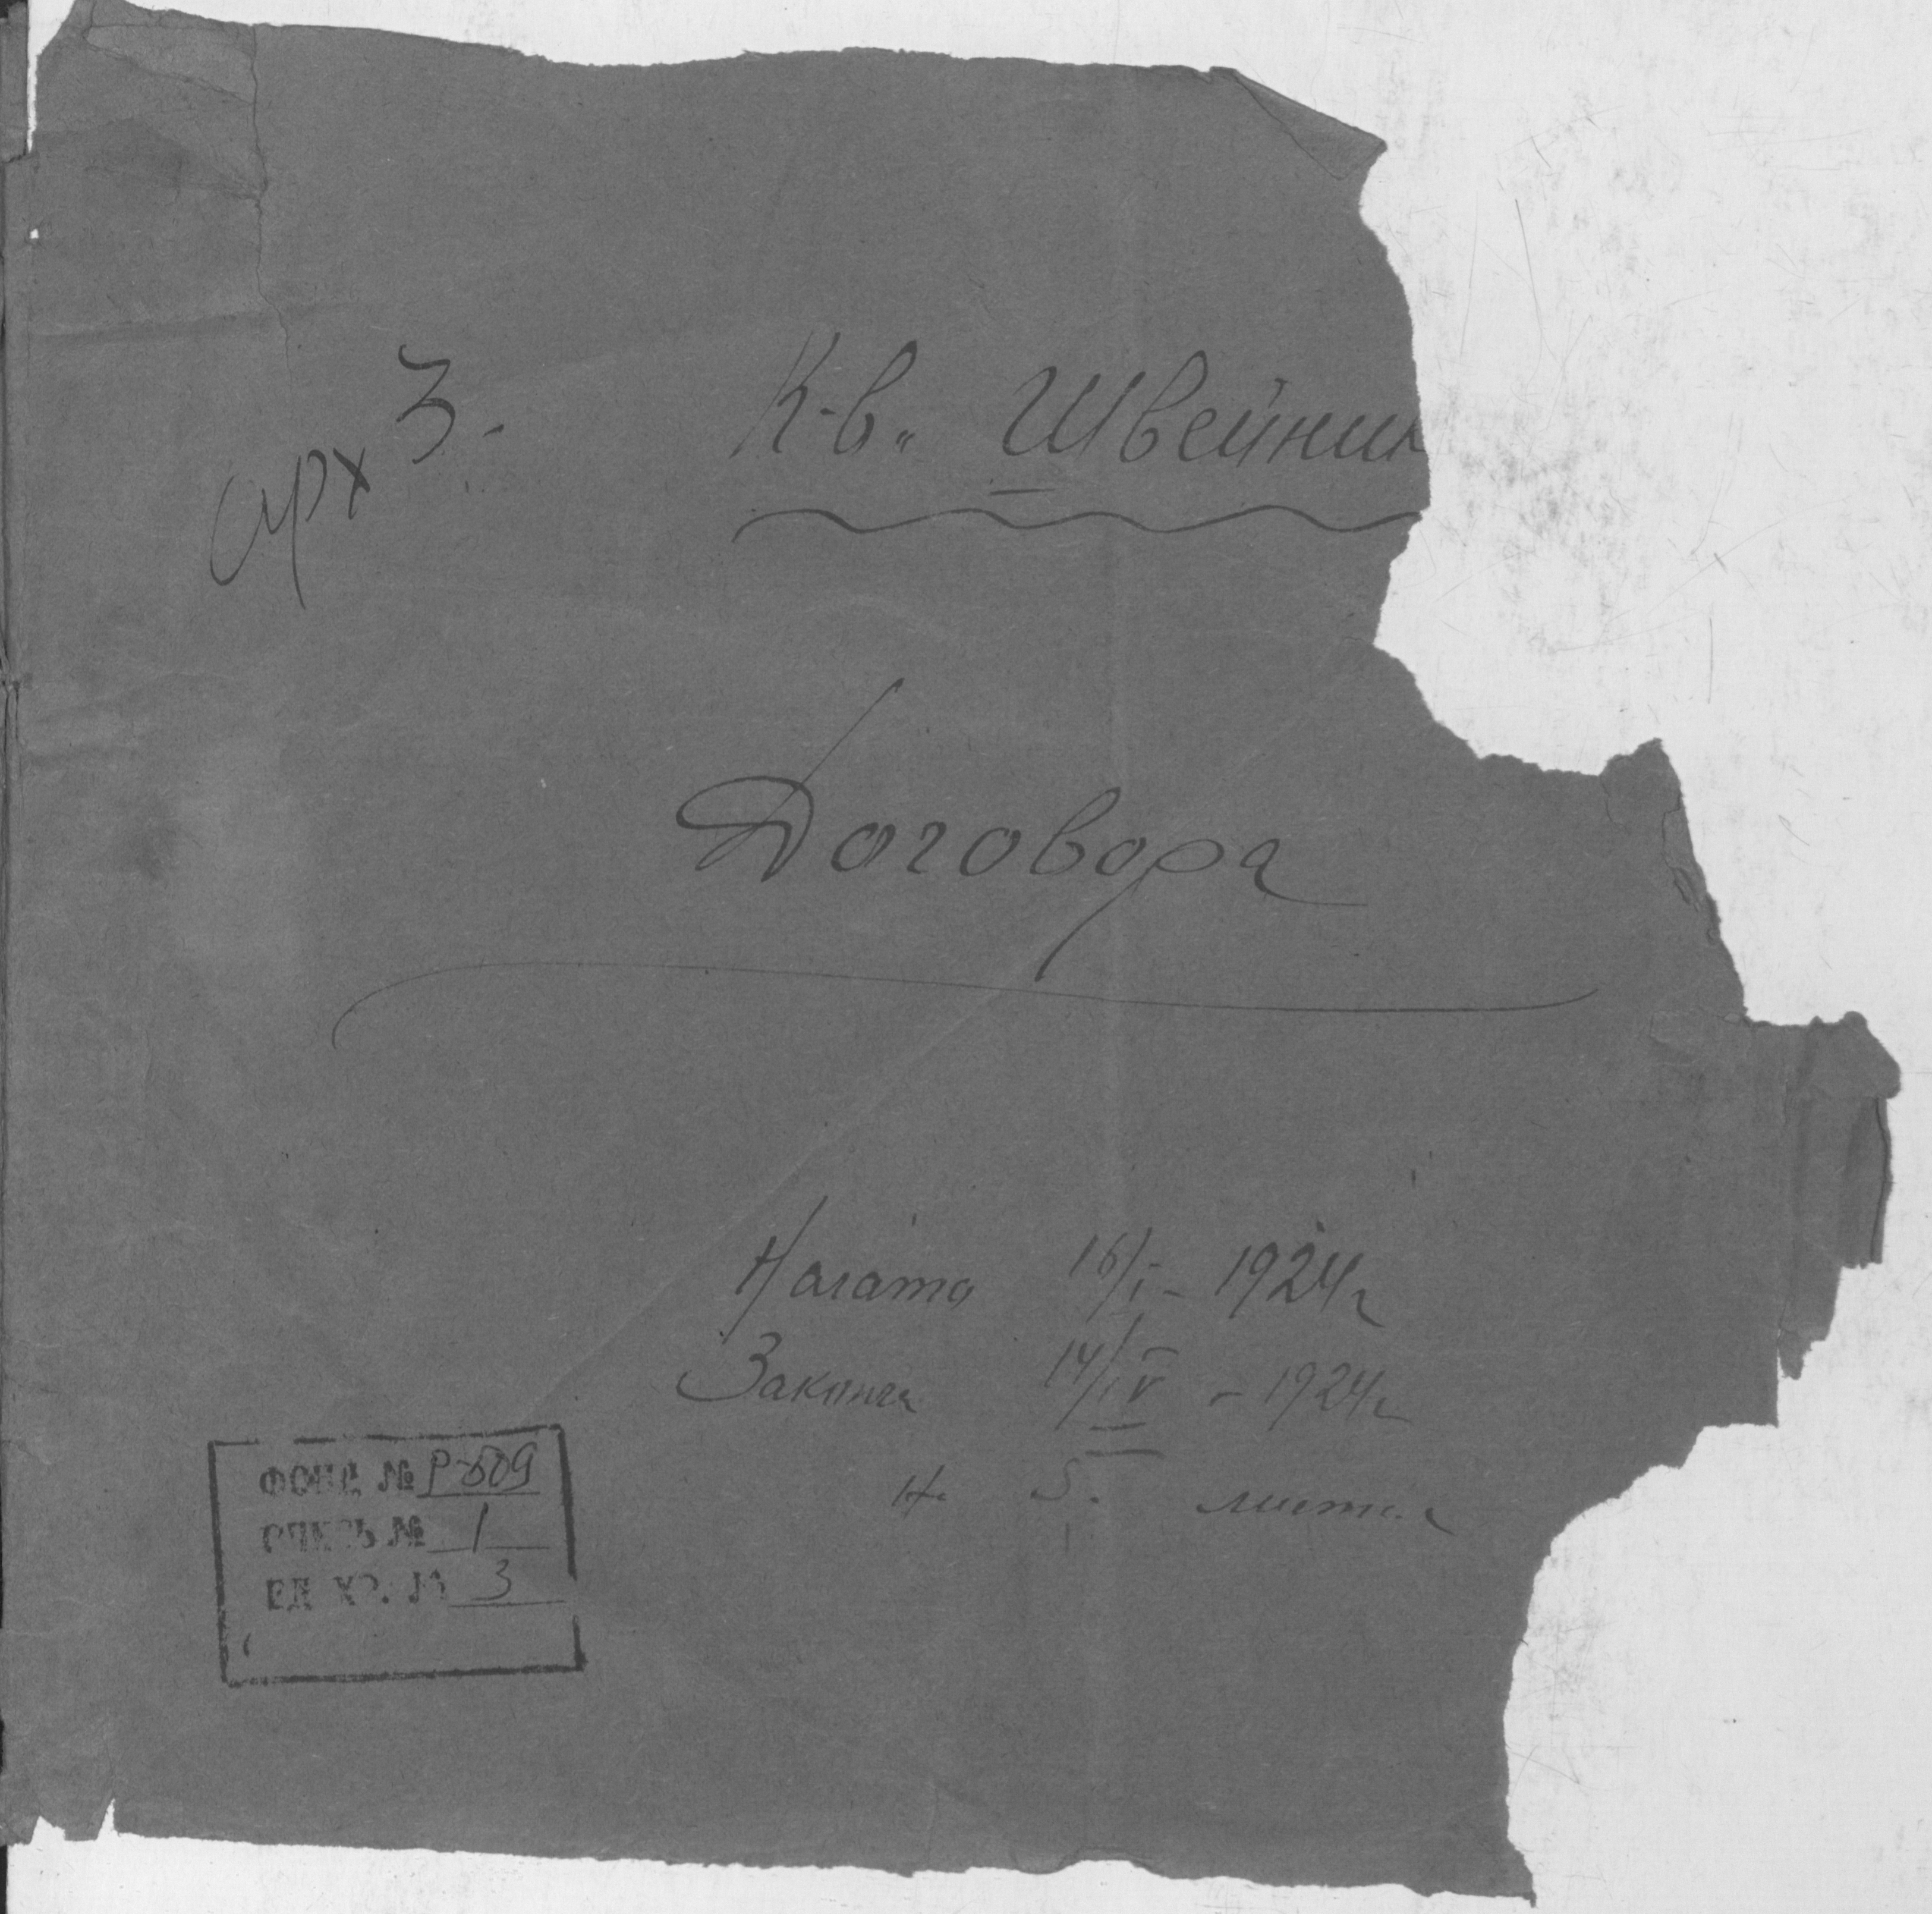 арх 3.
К-в. Швейник
Договора
Начато 16/I - 1924г
Законч 14/IV - 1924г
На 5. листах
ФОНД № Р-609
ОПИСЬ № 1
ЕД. ХР. № 3